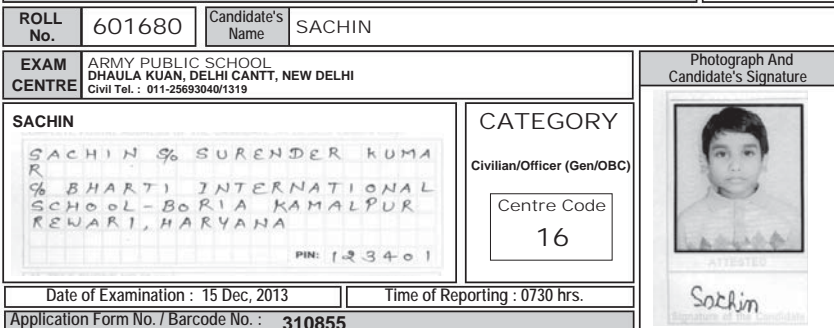 ROLL No. 601680 Candidate's Name SACHIN
EXAM CENTRE
ARMY PUBLIC SCHOOL
DHAULA KUAN, DELHI CANTT, NEW DELHI
Civil Tel. : 011-25693040/1319
Photograph And
Candidate's Signature
SACHIN
SACHIN S/o SURENDER KUMA
R
C/o BHARTI INTERNATIONAL
SCHOOL-BORIA KAMALPUR
REWARI, HARYANA
PIN: 123401
CATEGORY
Civilian/Officer (Gen/OBC)
Centre Code
16
ATTESTED
Sachin
Signature of the Candidate
Date of Examination : 15 Dec, 2013
Time of Reporting : 0730 hrs.
Application Form No. / Barcode No. : 310855